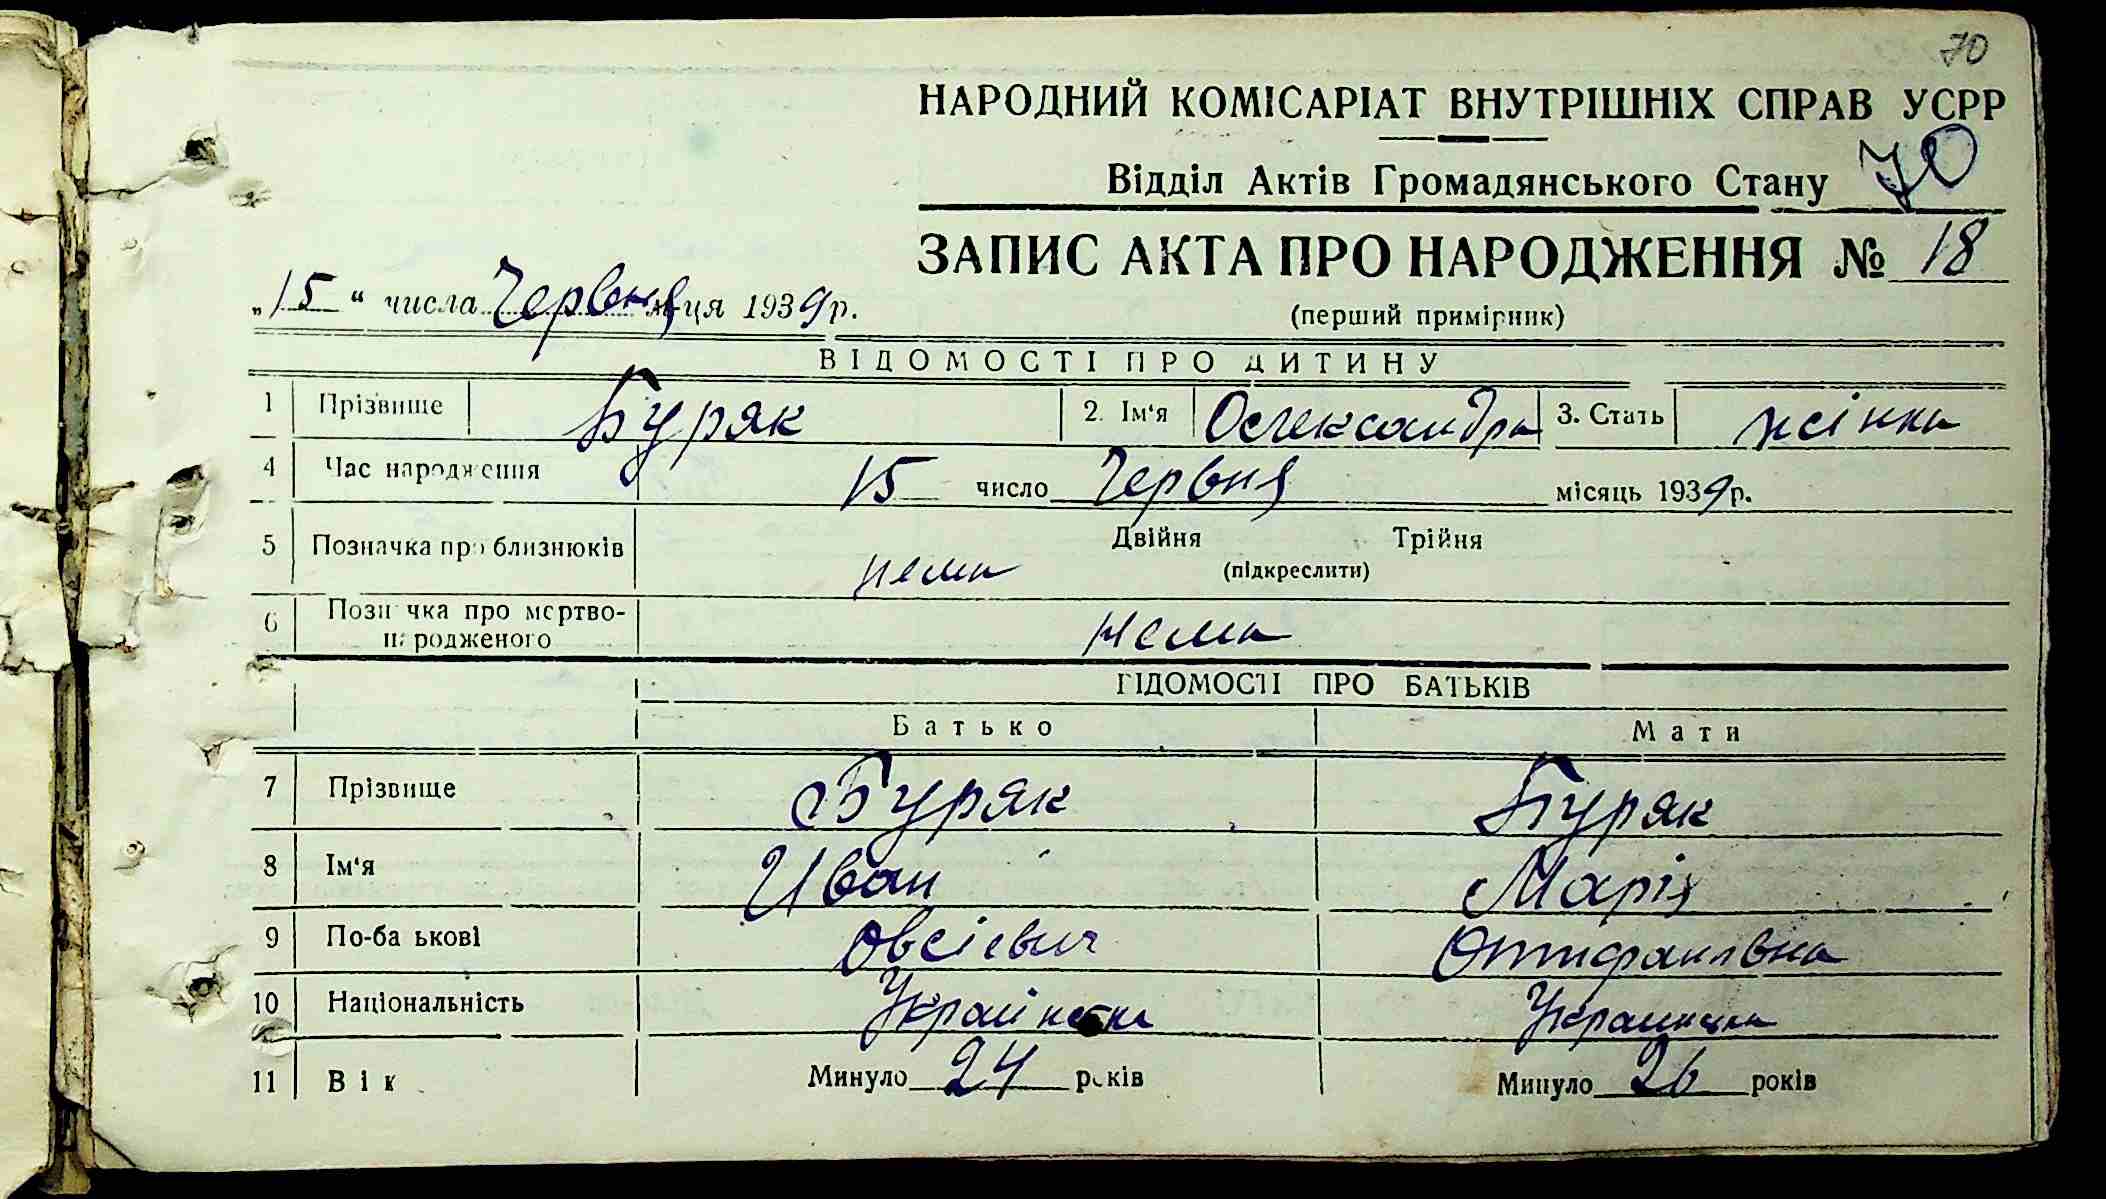 70
НАРОДНИЙ КОМІСАРІАТ ВНУТРІШНІХ СПРАВ УСРР
Відділ Актів Громадянського Стану 70
ЗАПИС АКТА ПРО НАРОДЖЕННЯ № 18
(перший примірник)
„15“ числа Червня м-ця 1939 р.
ВІДОМОСТІ ПРО ДИТИНУ
1 Прізвище Буряк 2. Ім‘я Олександра 3. Стать жінка
4 Час народження 15 число Червня місяць 1939 р.
5 Позначка про близнюків нема Двійня Трійня
(підкреслити)
6 Позначка про мертво-
народженого нема
ВІДОМОСТІ ПРО БАТЬКІВ
Батько Мати
7 Прізвище Буряк Буряк
8 Ім‘я Иван Марія
9 По-ба ькові Овсієвич
10 Національність Украінець Украинка
11 Вік Минуло 24 років Минуло 26 років